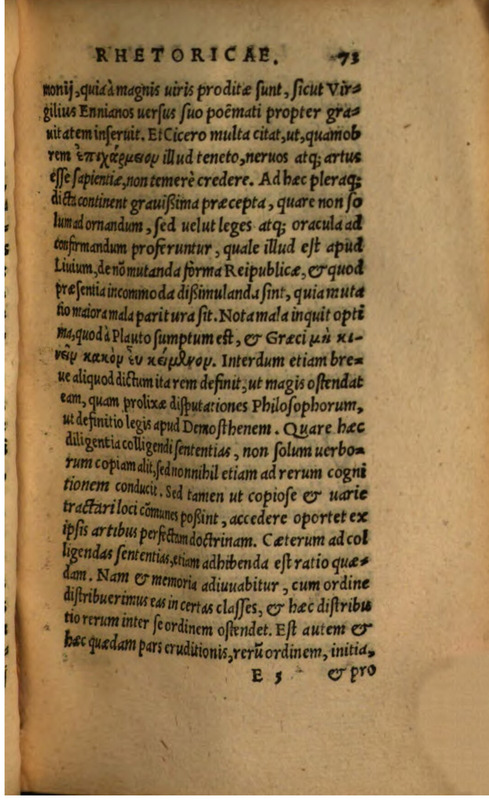 RHETORICAE. 73
monij, quia à magnis uiris proditæ sunt, sicut Vir=
gilius Ennianos uersus suo poëmati propter gra=
uitatem inseruit. Et Cicero multa citat, ut, quamob
rem ἐπιχάρμειον illud teneto, neruos atq; artus
esse sapientiæ, non temerè credere. Ad hæc pleraq;
dicta continent grauißima præcepta, quare non so
lum ad ornandum, sed uelut leges atq; oracula ad
confirmandum proferuntur, quale illud est apud
Liuium, de nõ mutanda forma Reipublicæ, & quod
præsentia incommoda dißimulanda sint, quia muta
tio maiora mala paritura sit. Nota mala inquit opti
ma, quod à Plauto sumptum est, & Græci μὴ κι=
νεῖν κακὸν εὖ κείμενον. Interdum etiam bre=
ue aliquod dictum ita rem definit, ut magis ostendat
eam, quam prolixæ disputationes Philosophorum,
ut definitio legis apud Demosthenem. Quare hæc
diligentia colligendi sententias, non solum uerbo=
rum copiam alit, sed nonnihil etiam ad rerum cogni
tionem conducit. Sed tamen ut copiose & uarie
tractari loci cõmunes poßint, accedere oportet ex
ipsis artibus perfectam doctrinam. Cæterum ad col
ligendas sententias, etiam adhibenda est ratio quæ=
dam. Nam & memoria adiuuabitur, cum ordine
distribuerimus eas in certas classes, & hæc distribu
tio rerum inter se ordinem ostendet. Est autem &
hæc quædam pars eruditionis, rerũ ordinem, initia,
E 5 & pro